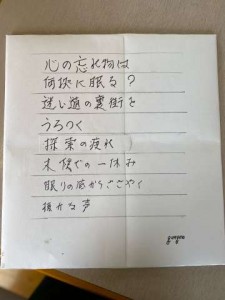 心の忘れ物は
何処に眠る?
迷い道の裏街を
うろつく
探索の疲れ
木陰での一休み
眠りの底からささやく
掠れる声